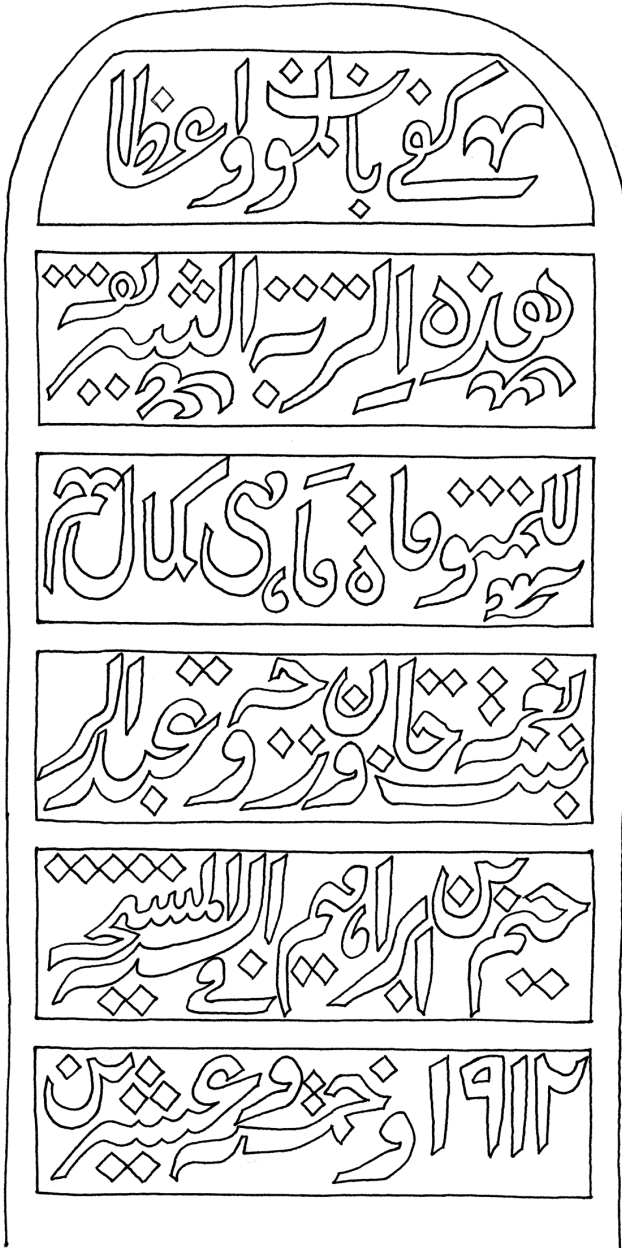 كفے بالموت واعظا
هذه التربة الشريفة
للمتوفاة مَاهى كمال
بنت نعمة خان وزوجة عبد الر
حيم بن ابراهيم فے السنة المسيحية
١٩١٢ وخمسة وعشرين